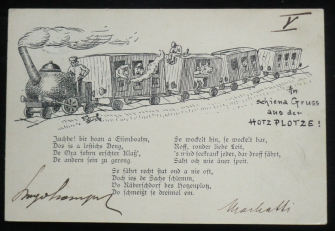 V
An
schiena Gruss
aus der
HOTZPLOTZE!
Juchhe! bir hoan a Eisenboahn,
Dos is a lustich Dreng,
De Oxa fohrn erschter Klass',
De andern sein zu gereng.
Se wockelt hin, se wockelt har,
Noff, ronder liebe Leit,
's wird seekrank jeder, dar drof fährt,
Saht och wie aner speit.
Se fährt racht stat ond a nie oft,
Doch ies de Sache schlemm,
De Räberschdorf bes Hotzenploz,
Do schmeißt se dreimol em.